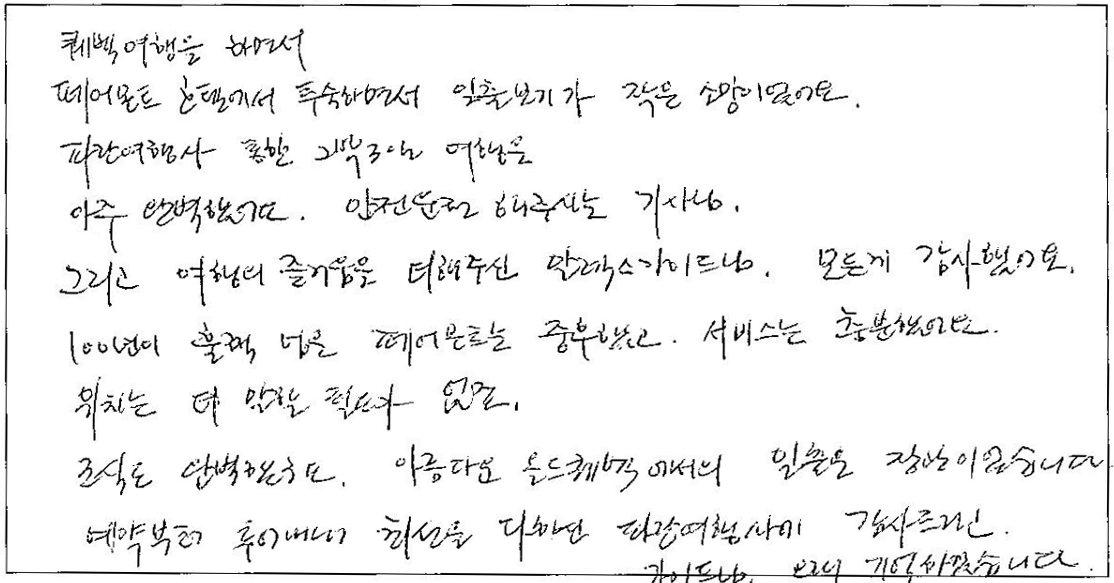 퀘벡여행을 하면서
페어몬트 호텔에서 투숙하면서 일출보기가 작은 소망이었어요.
파란여행사 통한 2박3일 여행은
아주 완벽했어요. 안전운전 해주시는 기사님.
그리고 여행의 즐거움을 더해주신 알렉스가이드님. 모든게 감사했어요.
100년이 훌쩍 넘은 페어몬트는 중후했고. 서비스는 충분했어요.
위치는 더 말할 필요가 없죠.
조식도 완벽했구요. 아름다운 올드퀘벡에서의 일출은 장관이었습니다
예약부터 투어내내 최선을 다하는 파란여행사에 감사드리고.
가이드님. 오래 기억하겠습니다.